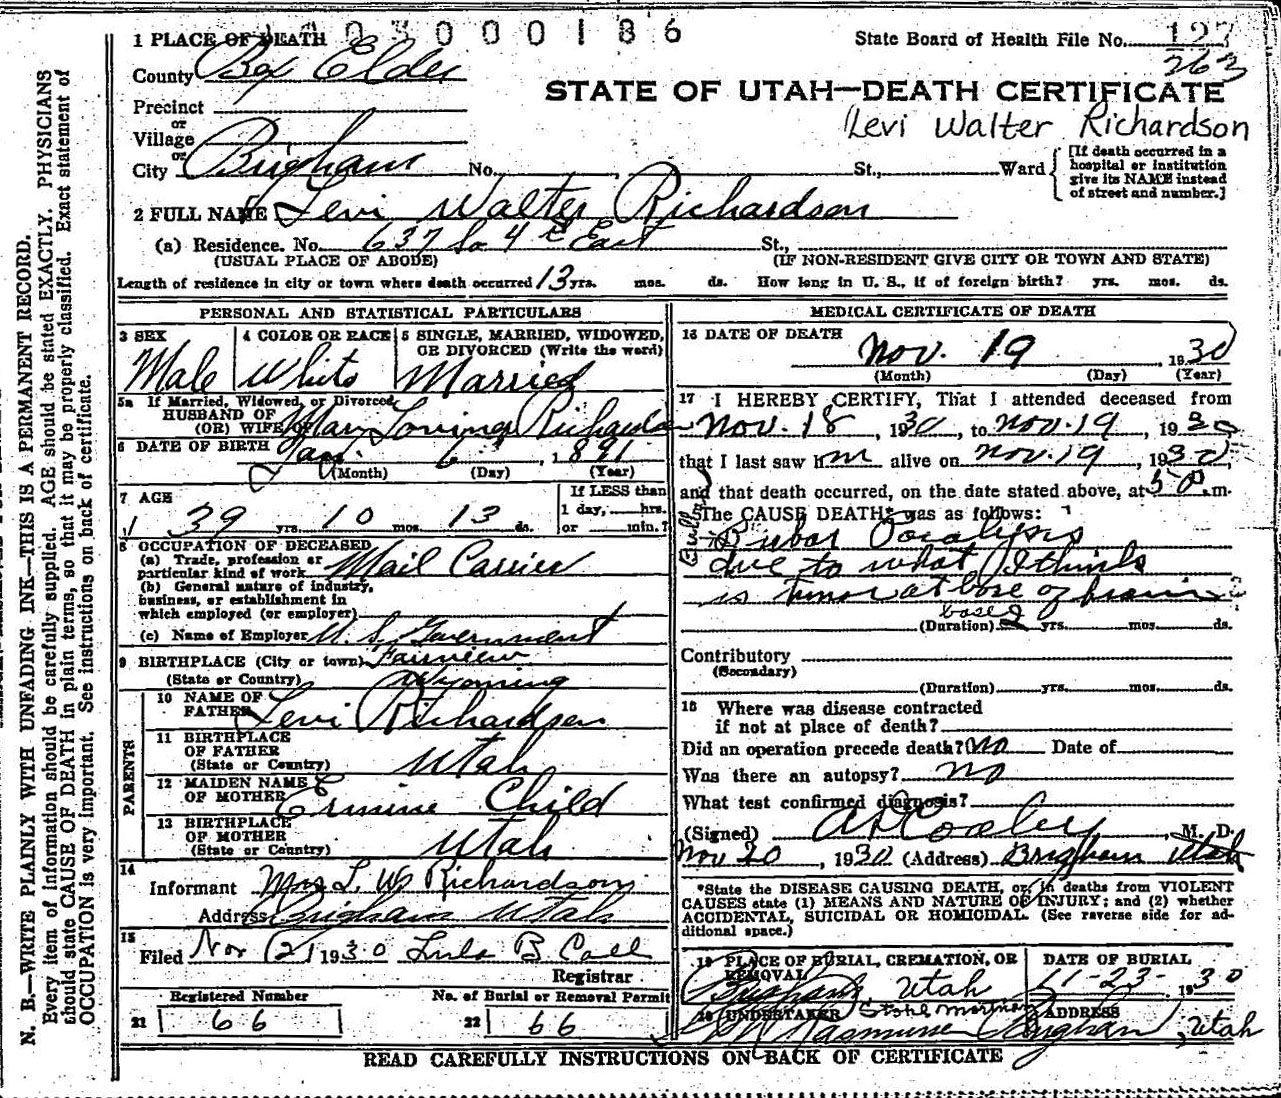 1 PLACE OF DEATH 03000186
State Board of Health File No. 127
263
County Box Elder
STATE OF UTAH—DEATH CERTIFICATE
Precinct
or
Village
Levi Walter Richardson
or
City Brigham No. , St., Ward
[If death occurred in a hospital or institution give its NAME instead of street and number.]
2 FULL NAME Levi Walter Richardson
(a) Residence. No. 637 So 4th East St.,
(USUAL PLACE OF ABODE) (IF NON-RESIDENT GIVE CITY OR TOWN AND STATE)
Length of residence in city or town where death occurred 13 yrs. mos. ds. How long in U. S., if of foreign birth? yrs. mos. ds.
PERSONAL AND STATISTICAL PARTICULARS
3 SEX
Male
4 COLOR OR RACE
White
5 SINGLE, MARRIED, WIDOWED,
OR DIVORCED (Write the word)
Married
5a If Married, Widowed, or Divorced
HUSBAND OF
(OR) WIFE Mary Loving Richardson
6 DATE OF BIRTH Jan. 6, 1891
(Month) (Day) (Year)
7 AGE
39 yrs. 10 mos. 13 ds.
If LESS than
1 day, hrs.
or min.?
8 OCCUPATION OF DECEASED
(a) Trade, profession or
particular kind of work Mail Carrier
(b) General nature of industry,
business, or establishment in
which employed (or employer)
(c) Name of Employer U. S. Government
9 BIRTHPLACE (City or town) Fairview
(State or Country) Wyoming
PARENTS
10 NAME OF
FATHER Levi Richardson
11 BIRTHPLACE
OF FATHER
(State or Country) Utah
12 MAIDEN NAME
OF MOTHER Ermine Child
13 BIRTHPLACE
OF MOTHER
(State or Country) Utah
14
Informant Mrs L. W Richardson
Address Brigham Utah
15
Filed Nov 21 1930 Lula B Call
Registrar
Registered Number
21 66
No. of Burial or Removal Permit
22 66
MEDICAL CERTIFICATE OF DEATH
16 DATE OF DEATH
Nov. 19, 1930
(Month) (Day) (Year)
17 I HEREBY CERTIFY, That I attended deceased from
Nov. 18, 1930, to Nov. 19, 1930
that I last saw h im alive on Nov. 19, 1930,
and that death occurred, on the date stated above, at 5 P. m.
The CAUSE DEATH* was as follows:
Bulbar
Bubar Paralysis
due to what I think
is tumor at base of brain
base
(Duration) 2 yrs. mos. ds.
Contributory
(Secondary)
(Duration) yrs. mos. ds.
18 Where was disease contracted
if not at place of death?
Did an operation precede death? No Date of
Was there an autopsy? no
What test confirmed diagnosis?
(Signed) A D Cooley, M. D.
Nov 20, 1930 (Address) Brigham Utah
*State the DISEASE CAUSING DEATH, or, in deaths from VIOLENT
CAUSES state (1) MEANS AND NATURE OF INJURY; and (2) whether
ACCIDENTAL, SUICIDAL OR HOMICIDAL. (See reverse side for ad-
ditional space.)
19 PLACE OF BURIAL, CREMATION, OR
REMOVAL
Brigham Utah
DATE OF BURIAL
11-23-1930
20 UNDERTAKER Stohl Mortuary
Rasmussen
ADDRESS
Brigham, Utah
READ CAREFULLY INSTRUCTIONS ON BACK OF CERTIFICATE
N. B.—WRITE PLAINLY WITH UNFADING INK—THIS IS A PERMANENT RECORD.
Every item of information should be carefully supplied. AGE should be stated EXACTLY. PHYSICIANS
should state CAUSE OF DEATH in plain terms, so that it may be properly classified. Exact statement of
OCCUPATION is very important. See instructions on back of certificate.